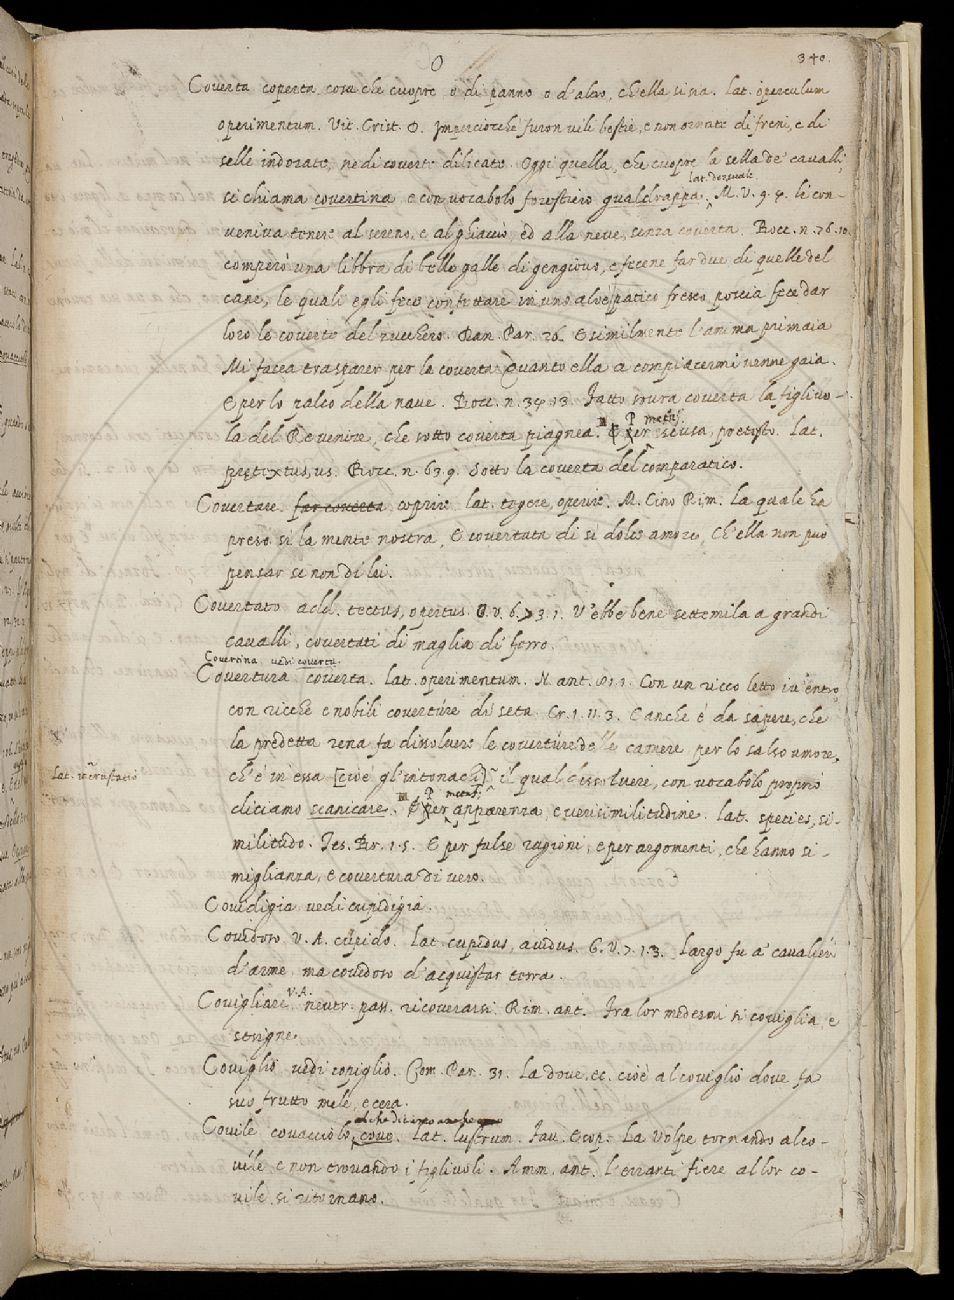 O
340.
Coverta coperta, cosa che cuopre o di panno o d'altro, ch'ella si sia. Lat. operculum
operimentum. Vit. Crist. D. Imperciocchè furon vili bestie, e non ornate di freni, e di
selle indorate, ne di coverte dilicate. Oggi quella, che cuopre la sella de' cavalli,
lat. dorsuale.
si chiama covertina, e con vocabolo forestiero gualdrappa. M. V. 9. 4. li con-
veniva tenere al sereno, e al ghiaccio, ed alla neve, senza coverta. Bocc. n. 76. 10.
comperò una libbra di belle galle di gengiovo, e fecene far due di quelle del
cane, le quali egli fece confettare in uno aloè patico fresco, poscia fece dar
loro le coverte del zucchero. Dan. Par. 26. E similmente l'anima primaia
Mi facea trasparer per la coverta Quanto ella a compiacermi venne gaia.
E per lo palco della nave. Bocc. n. 34. 13. Fatto sovra coverta la figliuo-
la del Re venire, che sotto coverta piagnea. P metaf. per iscusa, pretesto. Lat.
pretextus, us. Bocc. n. 63. 9. Sotto la coverta del comparatico.
Covertare far coverta, coprire. lat. tegere, operire. M. Cino Rim. La quale ha
preso sì la mente nostra, E covertata di sì dolce amore, Ch'ella non può
pensar se non di lei.
Covertato add. tectus, opertus. G. V. 6. 73. 1. V'ebbe bene settemila a grandi
cavalli, covertati di maglia di ferro.
Covertina. vedi coverta.
Covertura coverta. Lat. operimentum. N. ant. 81. 1. Con un ricco letto iv'entro
con ricche e nobili coverture di seta. Cr. 1. 11. 3. E anche è da sapere, che
la predetta rena fa dissolvere le coverture delle camere per lo salso umore,
Lat. incrustatio
ch'è in essa [cioè gl'intonachi] il qual dissolvere, con vocabolo proprio
diciamo scanicare. P metaf. per apparenza, e verisimilitudine. Lat. species, si-
militudo. Tes. Br. 1. 5. E per false ragioni, e per argomenti, che hanno si-
miglianza, e covertura di vero.
Covidigia vedi cupidigia.
Covidoso. V. A. cupido. Lat. cupidus, avidus. G. V. 7. 1. 3. Largo fu a' cavalieri
d'arme, ma covidoso d'acquistar terra.
Covigliare V. A. neutr. pass. ricoverarsi. Rim. ant. Fra lor medesmi si coviglia, e
strigne.
Coviglio vedi copiglio. Com. Par. 31. La dove, ec. cioè al coviglio dove fa
suo frutto mele, e cera.
Covile covacciolo, cove. Lat. lustrum. Fav. Esop. La volpe tornando al co-
vile e non trovando i figlivoli. Amm. ant. L'erranti fiere al lor co-
vile si ritornano.